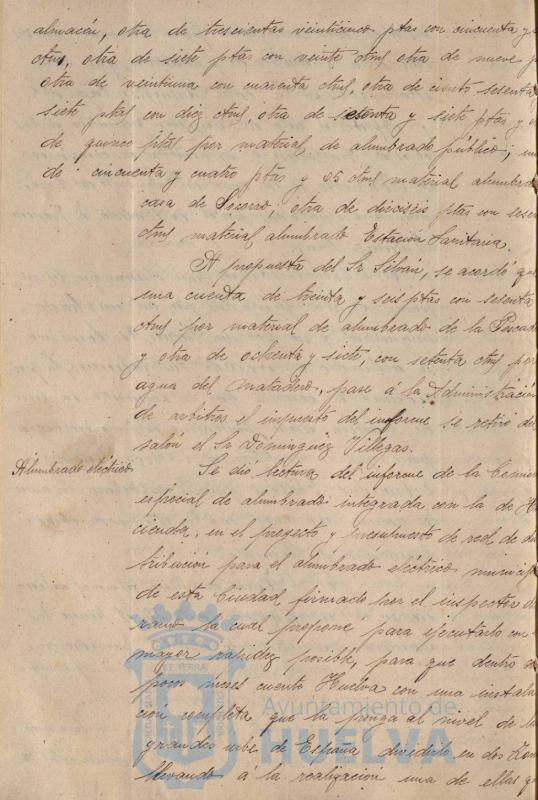 almacén, otra de trescientas veinticinco ptas con cincuenta y
ctms, otra de siete ptas con veinte ctms otra de nueve
otra de veintiuna con cuarenta ctms, otra de ciento sesenta
siete ptas con diez ctms, otra de setenta y siete ptas y
de quince ptas por material de alumbrado público;
de cincuenta y cuatro ptas y 25 ctms material alumbra
casa de Socorro; otra de dieciséis ptas con sesen
ctms material alumbrado Estación Sanitaria.
A propuesta del Sr. Sebán, se acordó que
una cuenta de treinta y seis ptas con sesenta
ctms por material de alumbrado de la Pescade
y otra de ochenta y siete, con setenta ctms por
agua del Matadero, pase á la Administración
de arbitros el impuesto del informe se retiró del
salón el Sr Dominguez Villegas.
Alumbrado eléctrico
Se dió lectura del informe de la Comisi
especial de alumbrado integrada con la de Ha
cienda, en el proyecto y presupuesto de red de dis
tribución para el alumbrado eléctrico municip
de esta Ciudad, firmado por el inspector d
ramo la cual propone para ejecutarlo con
mayor rapidez posible, para que dentro de
pocos meses cuente Huelva con una instala
ción completa que la ponga al nivel de las
grandes urbes de España dividirlo en dos zon
llevando á la realización una de ellas q
Ayuntamiento de
HUELVA